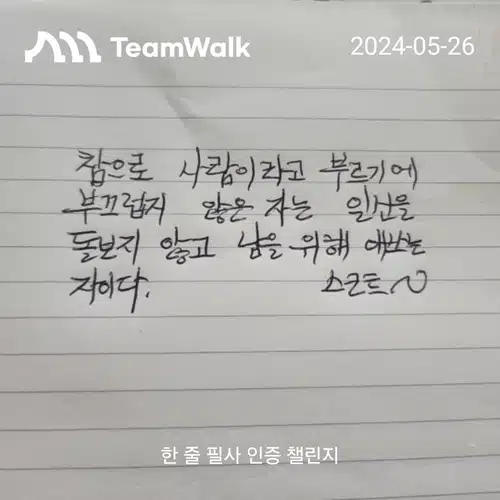 TeamWalk
2024-05-26
참으로 사람이라고 부르기에
부끄럽지 않은 자는 일신을
돌보지 않고 남을 위해 애쓰는
자이다.
스코트~
한 줄 필사 인증 챌린지